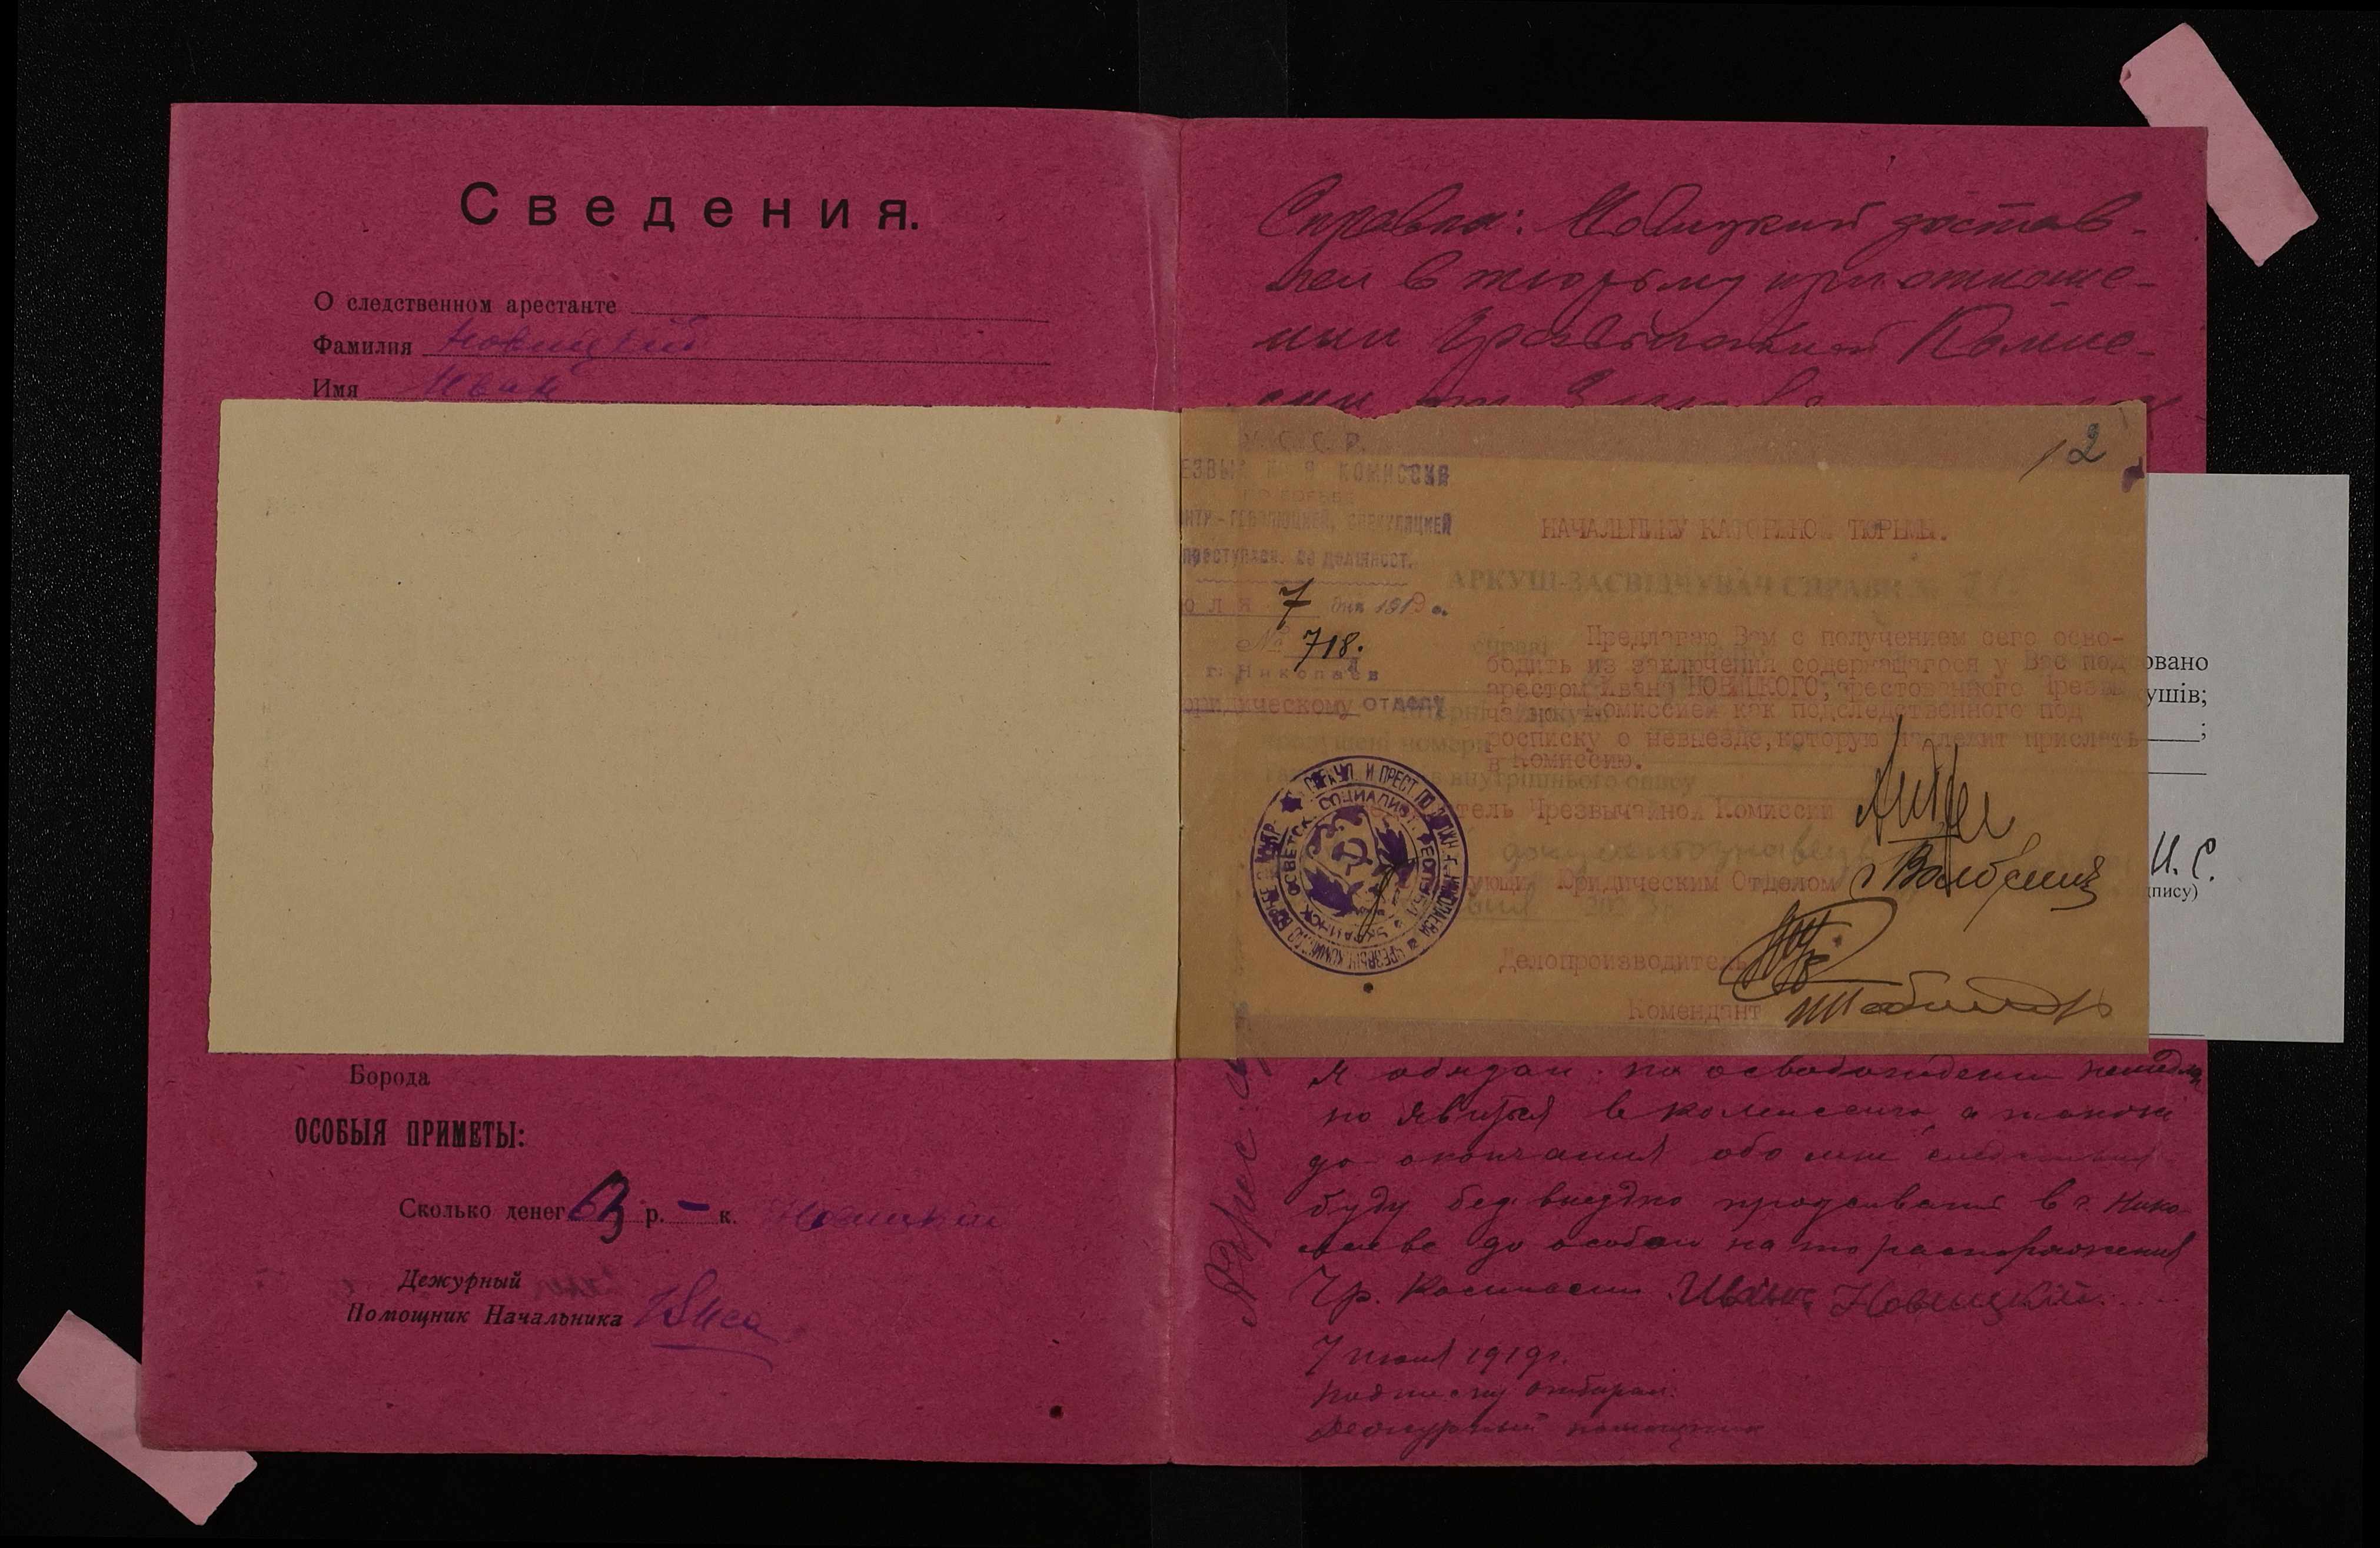 Сведения.
О следственном арестанте
Фамилия Новицкий
Имя Иван
Борода
ОСОБЫЯ ПРИМЕТЫ:
Сколько денег 63 р. – к. Новицкий
Дежурный
Помощник Начальника
Справка: Новицкий достав-
лен в тюрьму при отноше-
нии Чрезвычайной Комис-
сии
12
У. С. С. Р.
ЕЗВЫЧ КОМИССИЯ
ПО БОРЬБЕ
НТР-РЕВОЛЮЦИЕЙ, СПЕКУЛЯЦИЕЙ
преступлен. по должност.
юля 7 дня 1919 г.
№ 718.
г. Николаев
юридическому отделу
НАЧАЛЬНИКУ КАТОРЖНОЙ ТЮРЬМЫ.
АРКУШ-ЗАСВІДЧУВАЧ СПРАВИ №
Предлагаю Вам с получением сего осво-
бодить из заключения содержащагося у Вас под
арестом Ивана НОВИЦКОГО, арестованного Чрезвы
чайной Комиссией как подследственного под
росписку о невыезде, которую надлежит прислать
в Комиссию.
внутрішнього опису
тель Чрезвычайной Комиссии
ующий Юридическим Отделом
Делопроизводитель
Комендант
овано
ушів;
;
И. С.
пису)
Адрес
Я обязан по освобождении немедлен
но явиться в комиссию, а также
до окончания обо мне следствия
буду безвыездно проживать в г. Нико-
лаеве до особого на то распоряжения
Чр. Комиссии. Иван Новицкий.
7 июля 1919 г.
Подписку отбирал.
Дежурный помощник